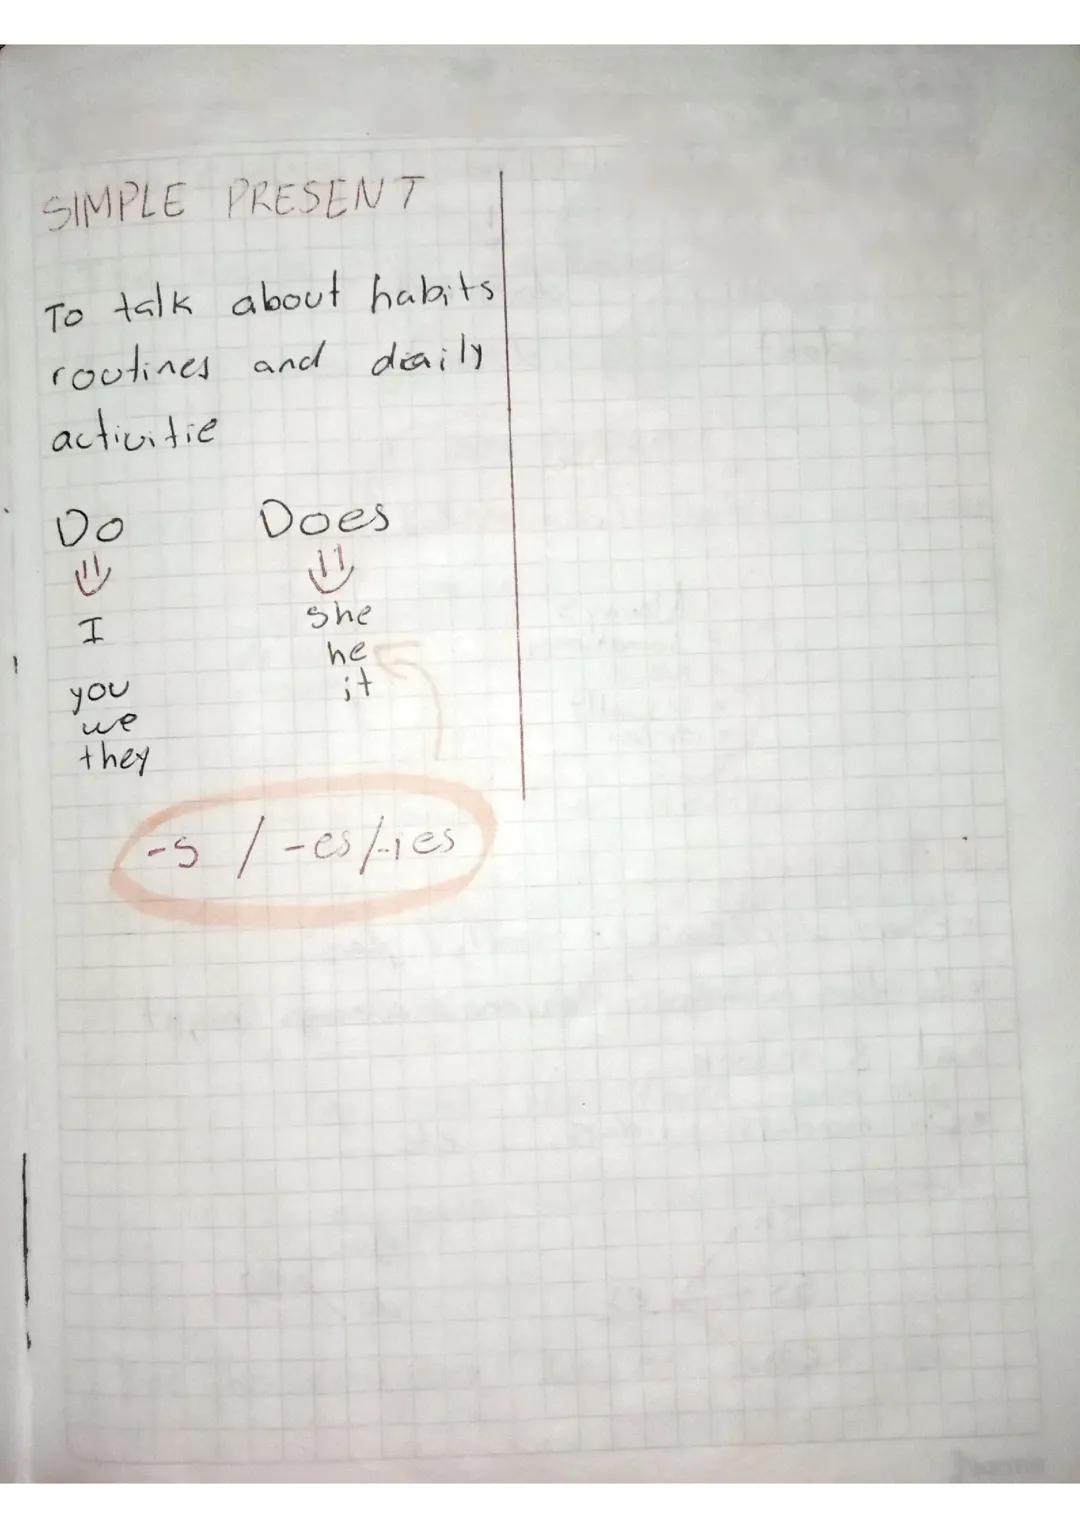 SIMPLE PRESENT
To talk about habits
routines and daily
activitie
Do Does
I she
he
you it
we
they
-s / -es/-ies